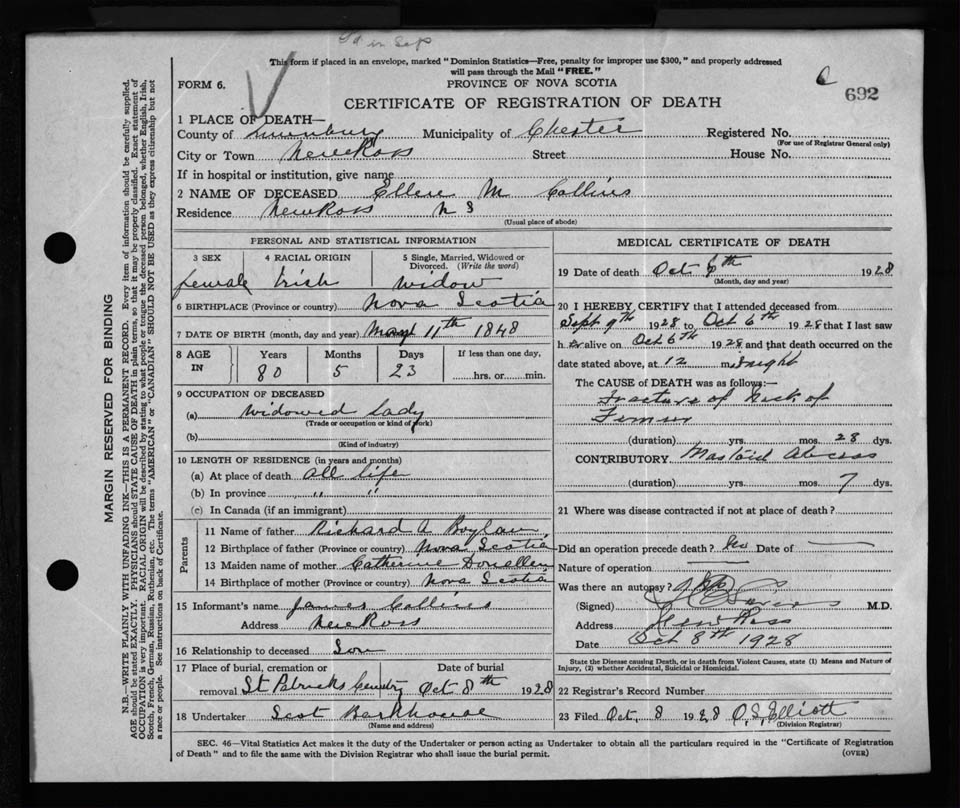 This form if placed in an envelope, marked "Dominion Statistics—Free, penalty for improper use $300," and properly addressed
will pass through the Mail "FREE."
FORM 6.
PROVINCE OF NOVA SCOTIA
692
CERTIFICATE OF REGISTRATION OF DEATH
1 PLACE OF DEATH—
County of Lunenburg Municipality of Chester Registered No.
(For use of Registrar General only)
City or Town New Ross Street House No.
If in hospital or institution, give name
2 NAME OF DECEASED Ellen M Collins
Residence New Ross N S
(Usual place of abode)
PERSONAL AND STATISTICAL INFORMATION
3 SEX 4 RACIAL ORIGIN 5 Single, Married, Widowed or Divorced. (Write the word)
female Irish Widow
6 BIRTHPLACE (Province or country) Nova Scotia
7 DATE OF BIRTH (month, day and year) 11th 1848
8 AGE IN Years Months Days If less than one day,
80 5 23 hrs. or min.
9 OCCUPATION OF DECEASED
(a) Widowed Lady
(Trade or occupation or kind of work)
(b)
(Kind of industry)
10 LENGTH OF RESIDENCE (in years and months)
(a) At place of death all life
(b) In province " "
(c) In Canada (if an immigrant)
Parents
11 Name of father Richard A Boylan
12 Birthplace of father (Province or country) Nova Scotia
13 Maiden name of mother Catherine Donellen
14 Birthplace of mother (Province or country) Nova Scotia
15 Informant's name James Collins
Address New Ross
16 Relationship to deceased Son
17 Place of burial, cremation or Date of burial
removal St Patricks Cemetry Oct 8th 1928
18 Undertaker Scot Barkhouse
(Name and address)
MEDICAL CERTIFICATE OF DEATH
19 Date of death Oct 6th 1928
(Month, day and year)
20 I HEREBY CERTIFY that I attended deceased from
Sept 9th 1928 to Oct 6th 1928 that I last saw
h er alive on Oct 6th 1928 and that death occurred on the
date stated above, at 12 m. night
The CAUSE of DEATH was as follows:—
Fracture of Neck of
Femur
(duration) yrs. mos. 28 dys.
CONTRIBUTORY Mastoid Abcess
(duration) yrs. mos. 7 dys.
21 Where was disease contracted if not at place of death?
Did an operation precede death? No Date of
Nature of operation
Was there an autopsy?
(Signed) M.D.
Address New Ross
Date Oct 8th 1928
State the Disease causing Death, or in death from Violent Causes, state (1) Means and Nature of
Injury, (2) whether Accidental, Suicidal or Homicidal.
22 Registrar's Record Number
23 Filed Oct. 8 1928 O. S. Elliott
(Division Registrar)
SEC. 46—Vital Statistics Act makes it the duty of the Undertaker or person acting as Undertaker to obtain all the particulars required in the "Certificate of Registration
of Death" and to file the same with the Division Registrar who shall issue the burial permit.
(OVER)
MARGIN RESERVED FOR BINDING
N.B.—WRITE PLAINLY WITH UNFADING INK—THIS IS A PERMANENT RECORD. Every item of information should be carefully supplied.
AGE should be stated EXACTLY. PHYSICIANS should STATE CAUSE OF DEATH in plain terms, so that it may be properly classified. Exact statement of
OCCUPATION is very important. RACIAL ORIGIN will be described by stating to what people or tongue the deceased person belonged, whether English, Irish,
Scotch, French, German, Russian, Ruthenian, etc. The terms "AMERICAN" or "CANADIAN" SHOULD NOT BE USED as they express citizenship but not
a race or people. See instructions on back of Certificate.